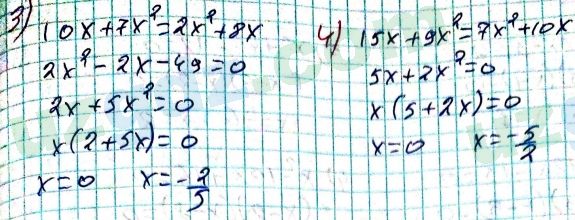 3) 10x+7x²=2x²+8x
2x²-2x-49=0
2x+5x²=0
x(2+5x)=0
x=0 x=-2/5
4) 15x+9x²=7x²+10x
5x+2x²=0
x(5+2x)=0
x=0 x=-5/2